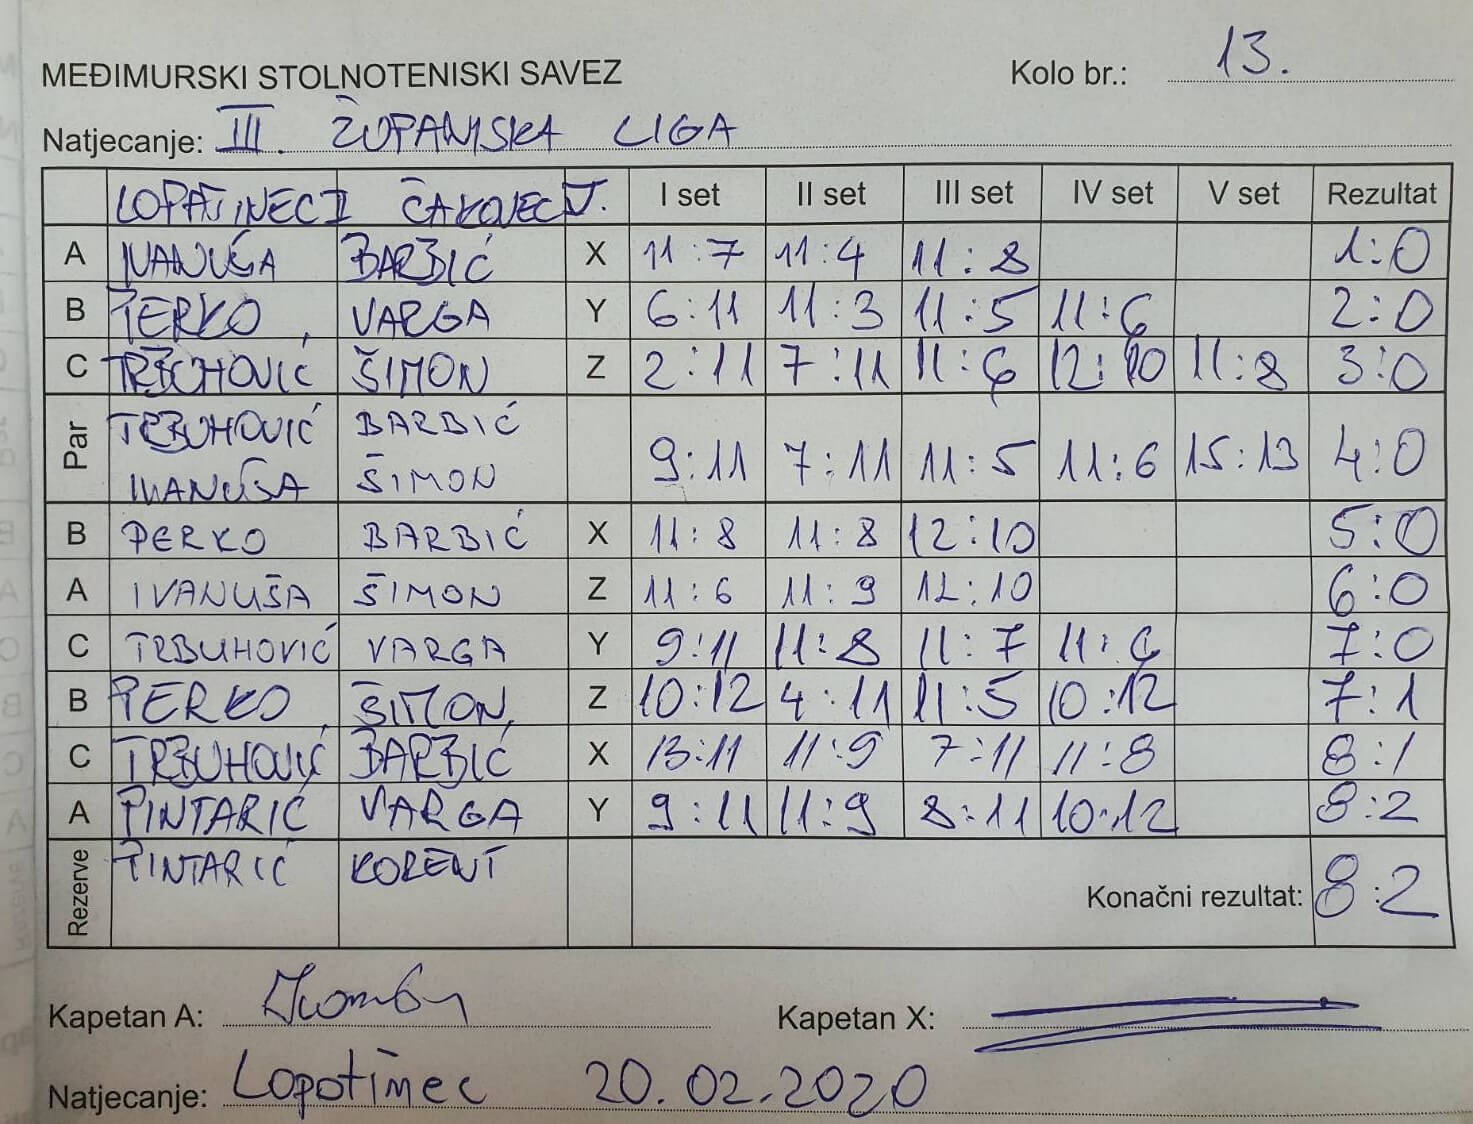 MEĐIMURSKI STOLNOTENISKI SAVEZ Kolo br.: 13.
Natjecanje: III. ŽUPANIJSKA LIGA
LOPATINEC II ČAKOVEC V. I set II set III set IV set V set Rezultat
A IVANUŠA BARBIĆ X 11:7 11:4 11:8 1:0
B PERKO VARGA Y 6:11 11:3 11:5 11:6 2:0
C TRBUHOVIĆ ŠIMON Z 2:11 7:11 11:6 12:10 11:8 3:0
Par TRBUHOVIĆ BARBIĆ
IVANUŠA ŠIMON 9:11 7:11 11:5 11:6 15:13 4:0
B PERKO BARBIĆ X 11:8 11:8 12:10 5:0
A IVANUŠA ŠIMON Z 11:6 11:9 12:10 6:0
C TRBUHOVIĆ VARGA Y 9:11 11:8 11:7 11:6 7:0
B PERKO ŠIMON Z 10:12 4:11 11:5 10:12 7:1
C TRBUHOVIĆ BARBIĆ X 13:11 11:9 7:11 11:8 8:1
A PINTARIĆ VARGA Y 9:11 11:9 8:11 10:12 8:2
Rezerve PINTARIĆ KORENT Konačni rezultat: 8:2
Kapetan A: Kapetan X:
Natjecanje: Lopatinec 20.02.2020